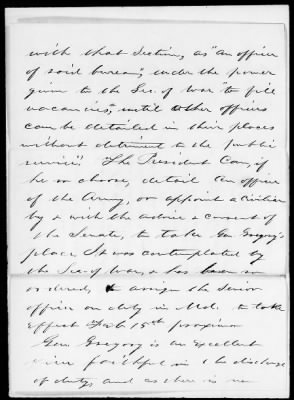 with that Section, as "an officer
of said bureau", under the power
given to the Sec. of War "to fill
vacancies," until other officers
can be detailed in their places
without detriment to the public
service". The President can, if
he so choose, detail an officer
of the Army, or appoint a civilian
by & with the advice & consent of
the Senate, to take Gen Gregory's
place. It was contemplated by
the Sec. of War, & has been so
ordered, to assign the senior
officer on duty in Md. to take
effect Feb 15th proximo
Gen Gregory is an excellent
faithful in the discharge
of duty, and as there is no